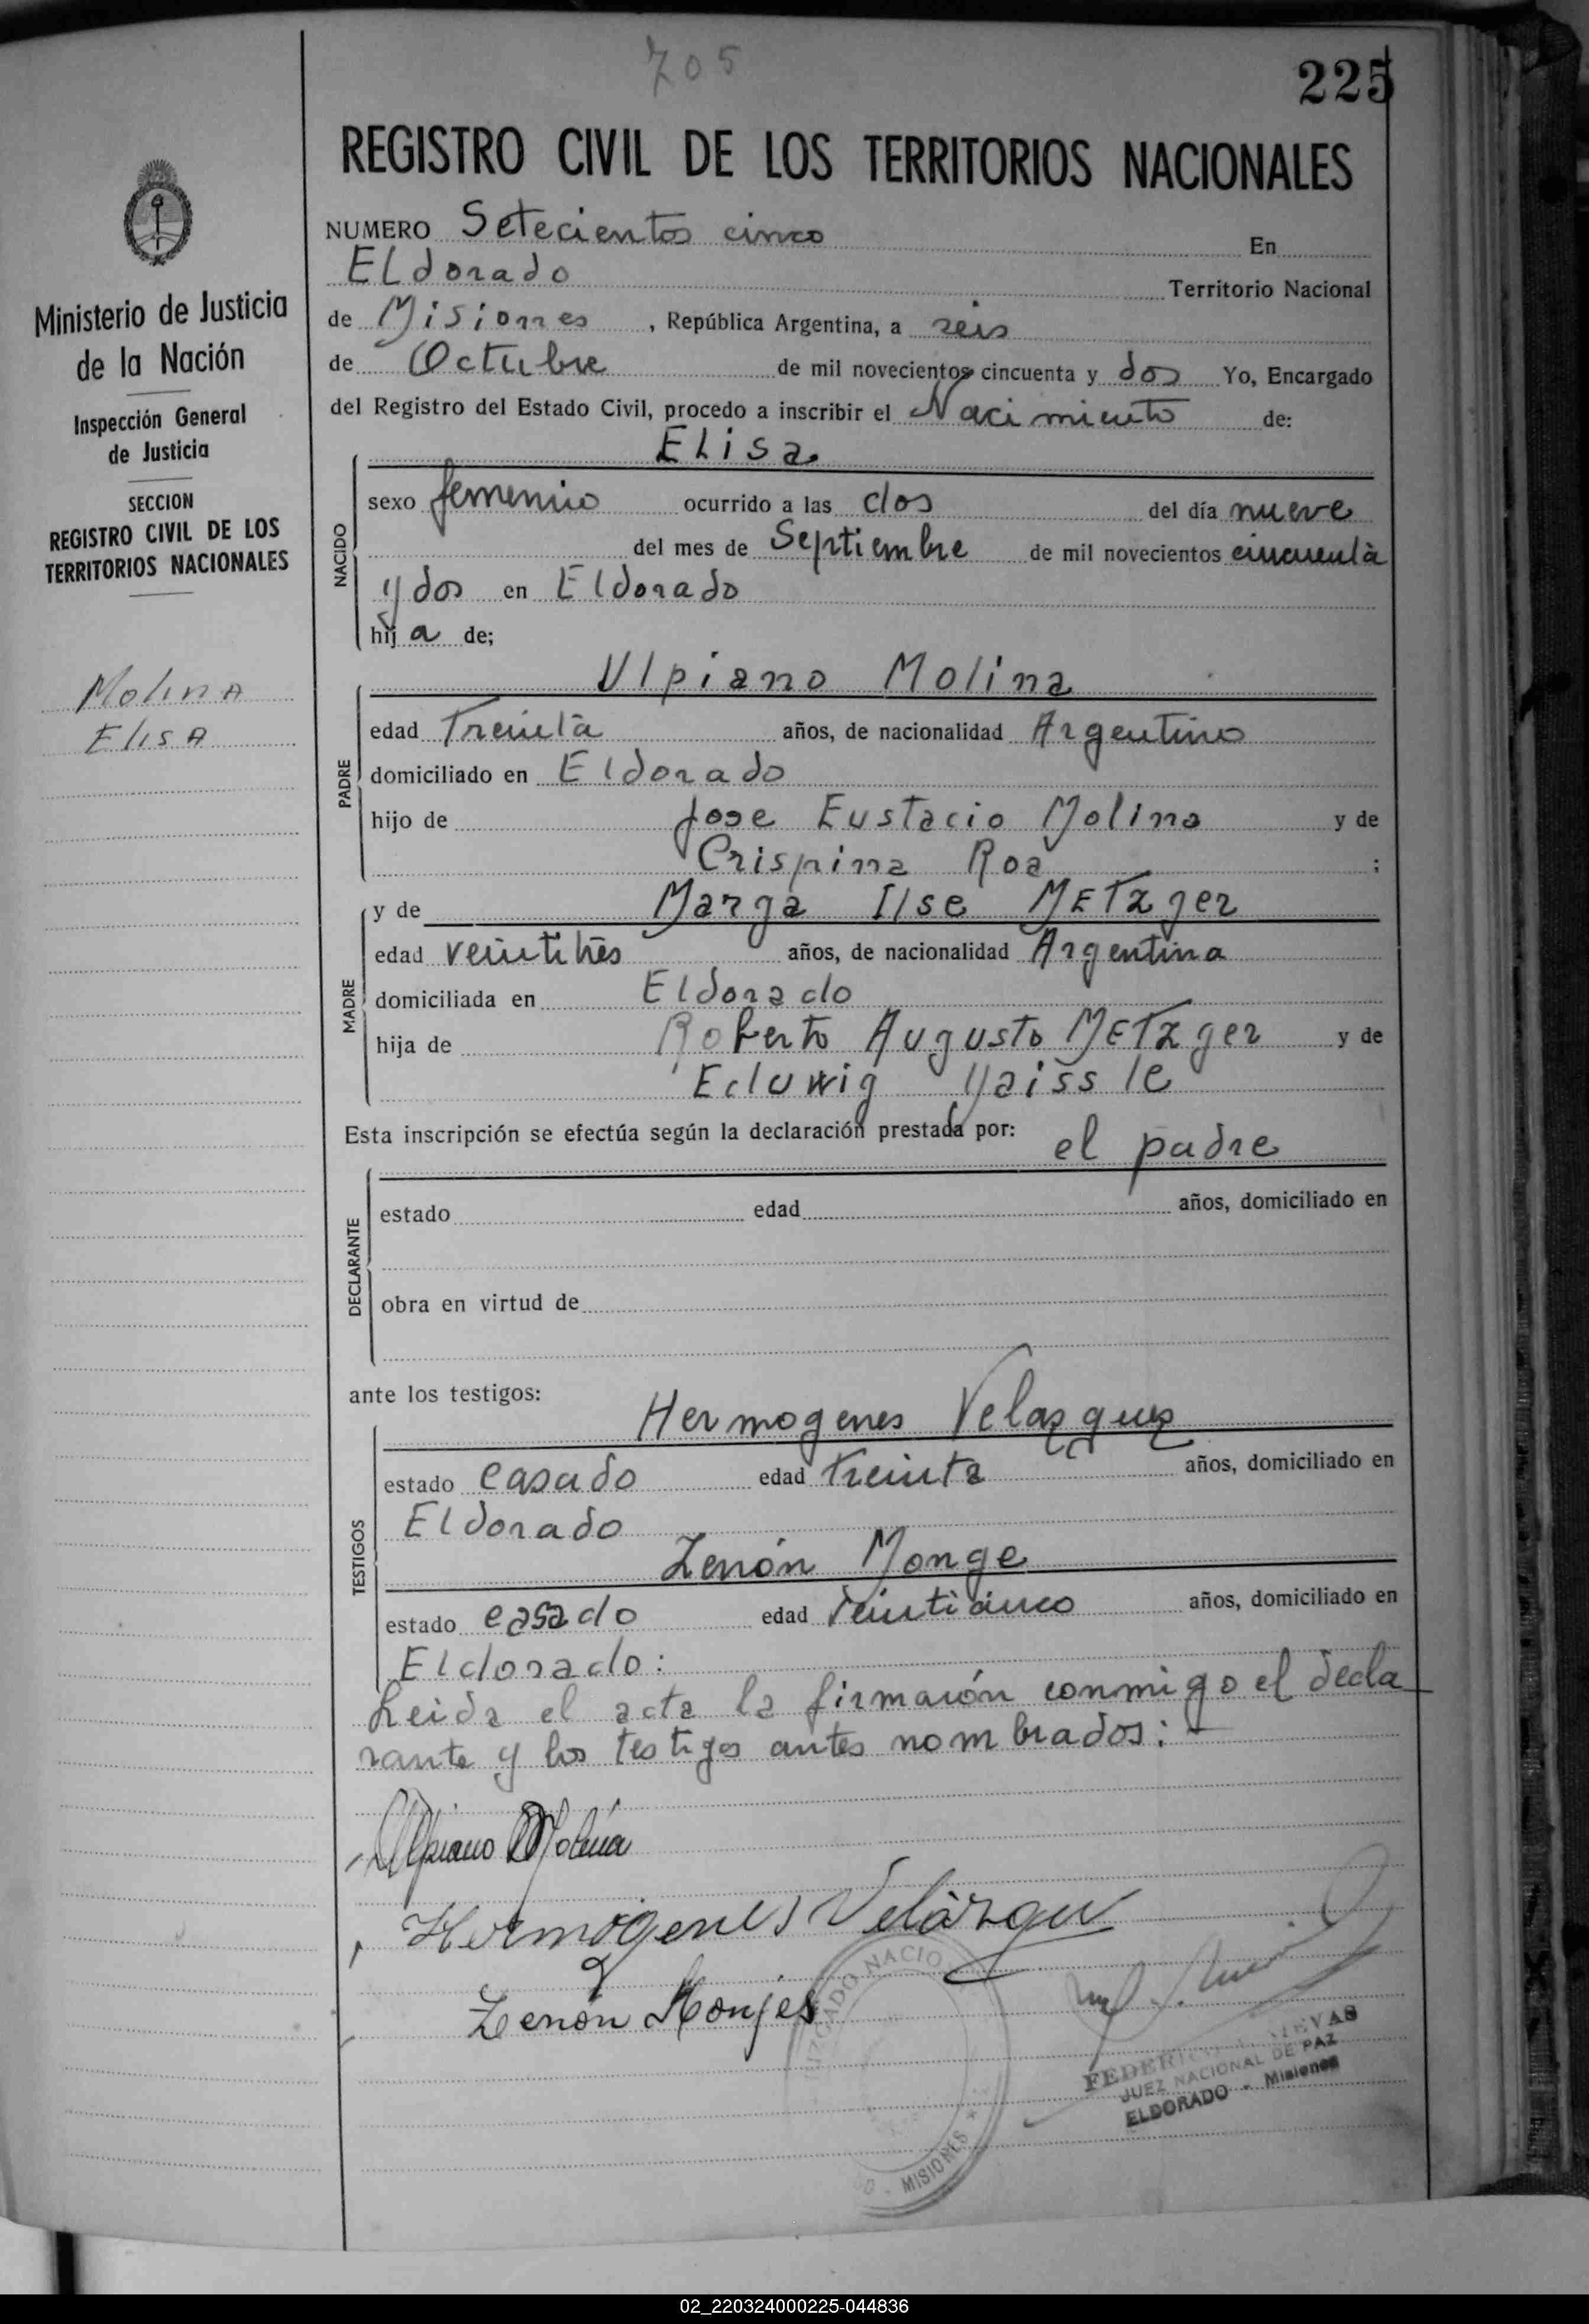 705
225
REGISTRO CIVIL DE LOS TERRITORIOS NACIONALES
Ministerio de Justicia
de la Nación
Inspección General
de Justicia
SECCION
REGISTRO CIVIL DE LOS
TERRITORIOS NACIONALES
Molina
Elisa
NUMERO Setecientos cinco En
ELdorado Territorio Nacional
de Misiones , República Argentina, a seis
de Octubre de mil novecientos cincuenta y dos Yo, Encargado
del Registro del Estado Civil, procedo a inscribir el Nacimiento de:
NACIDO
ELisa
sexo femenino ocurrido a las dos del día nueve
del mes de Septiembre de mil novecientos cincuenta
y dos en Eldorado
hij a de;
PADRE
Ulpiano Molina
edad Treinta años, de nacionalidad Argentino
domiciliado en Eldorado
hijo de Jose Eustacio Molina y de
Crispina Roa ;
MADRE
y de Marga Ilse METzger
edad veintitres años, de nacionalidad Argentina
domiciliada en Eldorado
hija de Roberto Augusto METzger y de
Eduwig Yaissle
Esta inscripción se efectúa según la declaración prestada por: el padre
DECLARANTE
estado edad años, domiciliado en
obra en virtud de
ante los testigos:
TESTIGOS
Hermogenes Velazquez
estado casado edad Treinta años, domiciliado en
Eldorado
Zenón Monge
estado casado edad Veinticinco años, domiciliado en
Eldorado:
Leida el acta la firmarón conmigo el decla
rante y los testigos antes nombrados: -
Ulpiano Molina
Hermógenes Velázquez
Zenón Monjes
JUZGADO NACIO
MISIONES *
FEDERICO
JUEZ NACIONAL DE PAZ
ELDORADO - Misiones
02_220324000225-044836